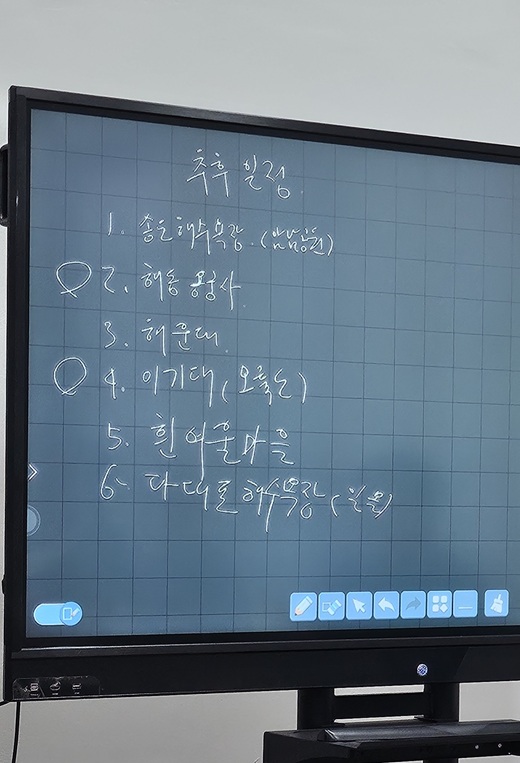 추후 일정.
1. 송도해수욕장. (암남공원)
2. 해동 용궁사
3. 해운대.
4. 이기대 (오륙도)
5. 흰여울마을
6. 다대포해수욕장 (일몰)